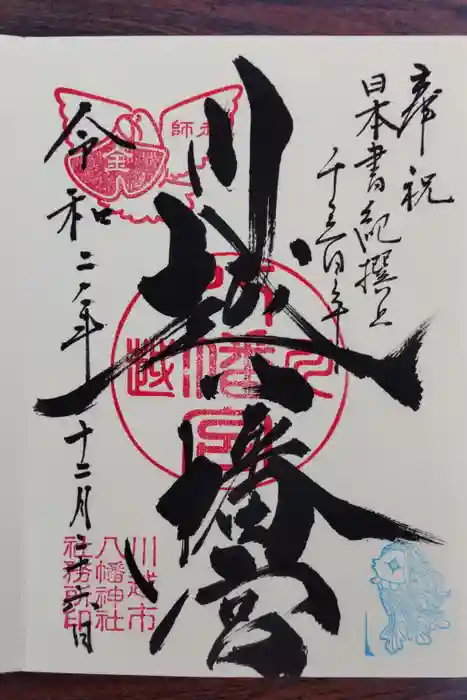 奉祝
日本書紀撰上
千三百年
川越八幡宮
令和二年十二月二十六日
川越市
八幡神社
社務所印